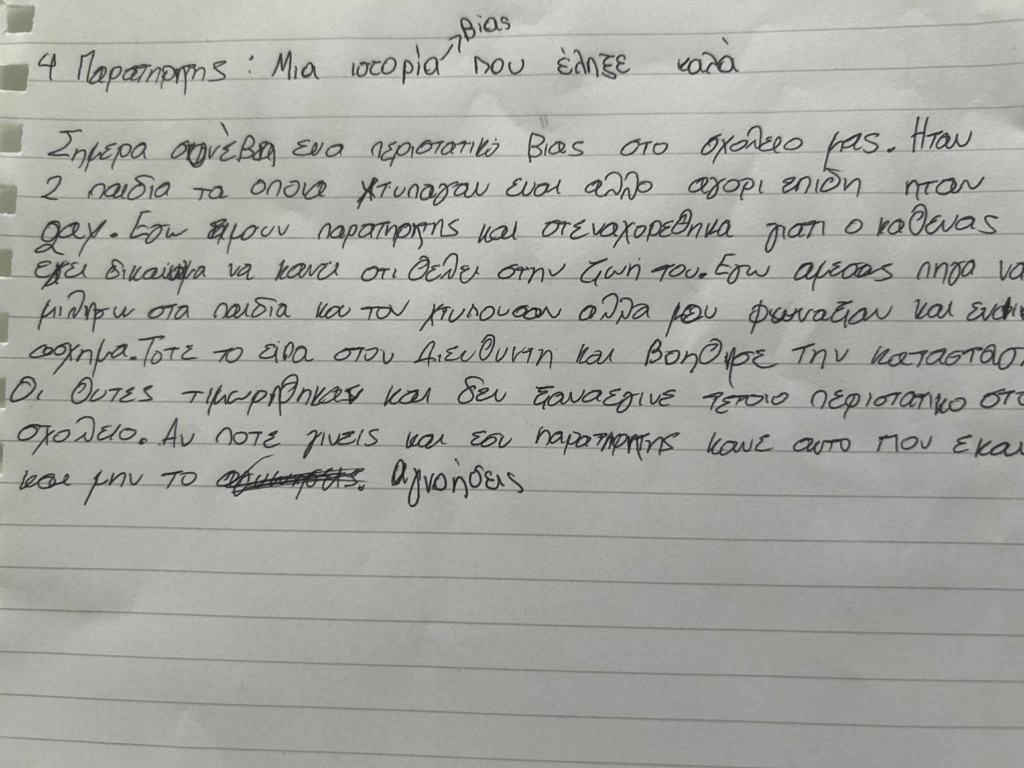 4 Παρατηρητης : Μια ιστορία βιας που έληξε καλά
Σημερα συνέβη ενα περιστατικό βιας στο σχολειο μας. Ηταν
2 παιδια τα οποια χτυπαγαν ενα αλλο αγορι επιδη ηταν
gay. Εγω ημουν παρατηρητης και στεναχορεθηκα γιατι ο καθενας
εχει δικαιωμα να κανει οτι θελει στην ζωή του. Εγω αμεσως πηγα να
μιλησω στα παιδια και τον χτυπουσαν αλλα μου φωναξαν και
ασχημα. Τοτε το ειπα στον Διευθυντη και βοηθησε την καταστασ
Οι θυτες τιμωρηθηκαν και δεν ξαναεγινε τετοιο περιστατικο στο
σχολειο. Αν ποτε γινεις και εσυ παρατηρητης κανε αυτο που εκαν
και μην το αγνοήσεις